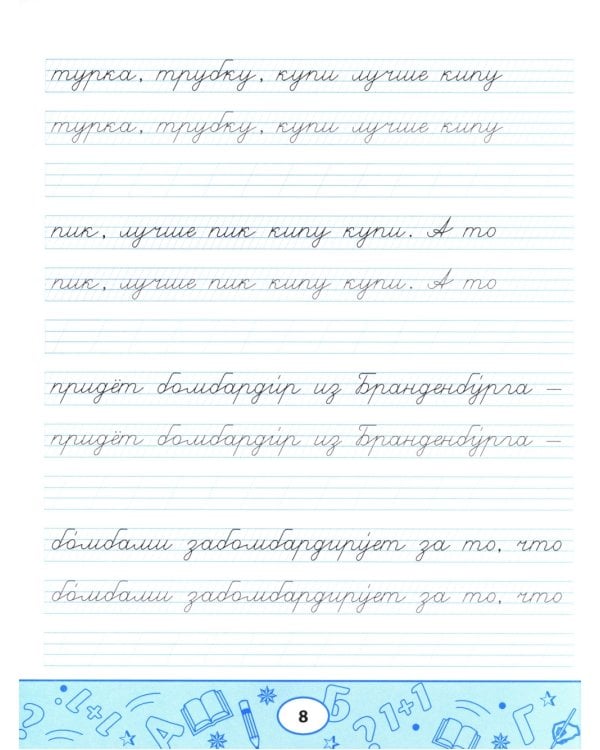 турка, трубку, купи лучше кипу
турка, трубку, купи лучше кипу
пик, лучше пик кипу купи. А то
пик, лучше пик кипу купи. А то
придёт бомбарди́р из Бранденбу́рга –
придёт бомбарди́р из Бранденбу́рга –
бо́мбами забомбардиру́ет за то, что
бо́мбами забомбардиру́ет за то, что
? 1+1 А 8 Б ? 1+1 Г